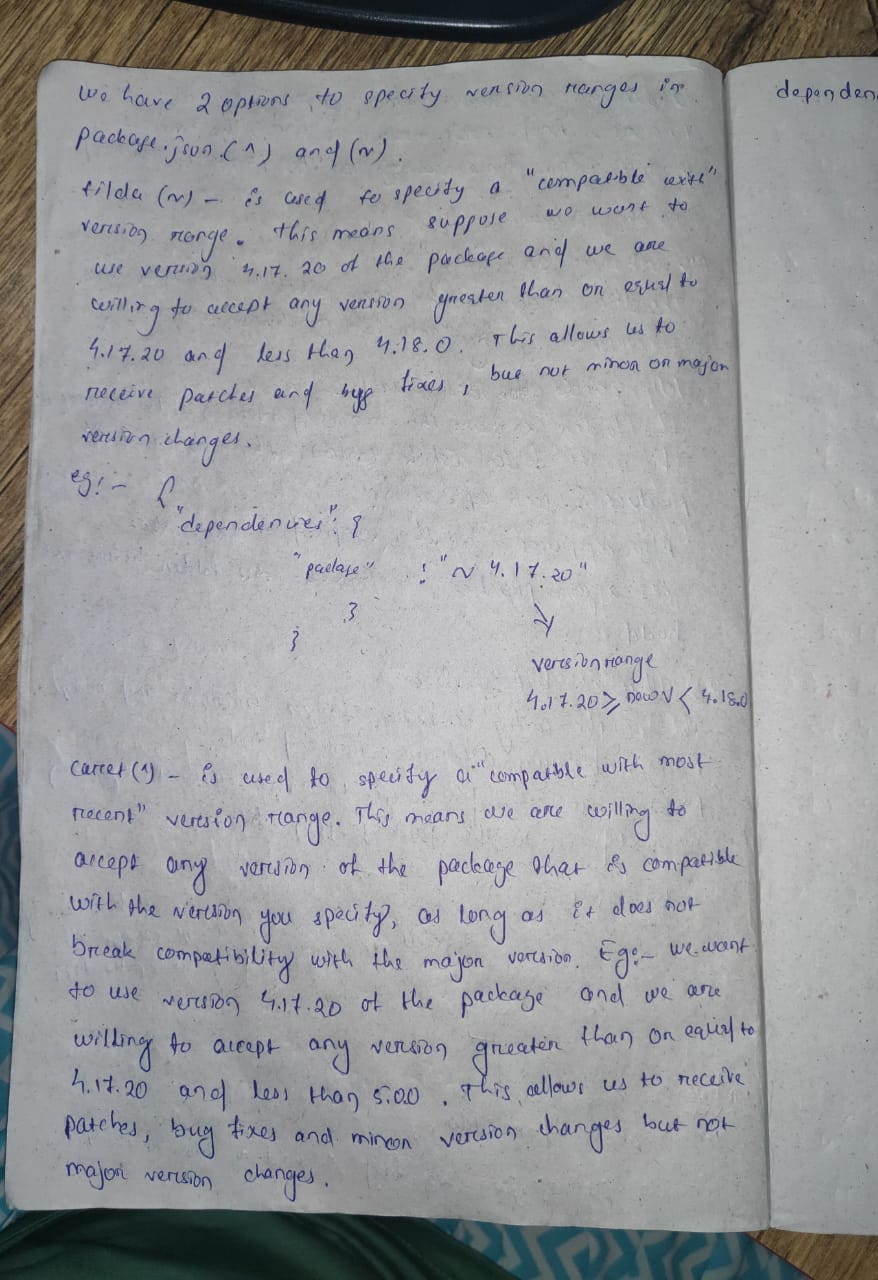 We have 2 options to specify version ranges in
package.json (^) and (~).
tilda (~) - is used to specify a "compatible with"
version range. This means suppose we want to
use version 4.17.20 of the package and we are
willing to accept any version greater than or equal to
4.17.20 and less than 4.18.0. This allows us to
receive patches and bug fixes, but not minor or major
version changes.
eg:- {
"dependencies": {
"package" : "~ 4.17.20"
}
}
version range
4.17.20 ≥ now V < 4.18.0
Carret (^) - is used to specify a "compatible with most
recent" version range. This means we are willing to
accept any version of the package that is compatible
with the version you specify, as long as it does not
break compatibility with the major version. Eg:- we want
to use version 4.17.20 of the package and we are
willing to accept any version greater than or equal to
4.17.20 and less than 5.0.0. This allows us to receive
patches, bug fixes and minor version changes but not
major version changes.
dependen